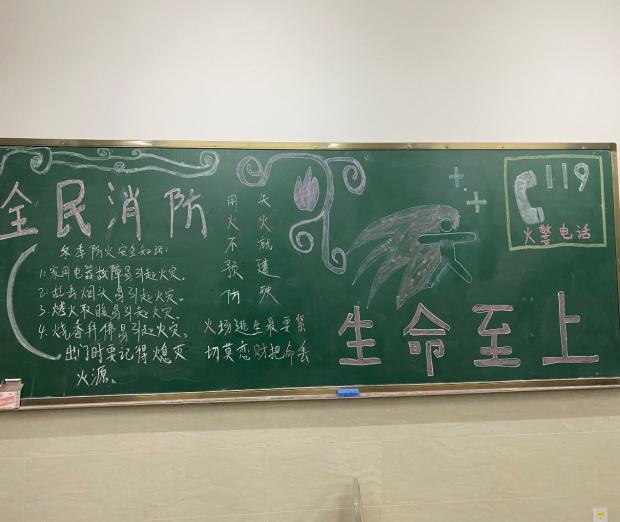 全民消防
冬季防火安全知识:
1. 家用电器故障易引起火灾。
2. 乱丢烟头易引起火灾。
3. 烤火取暖易引起火灾。
4. 烧香拜佛易引起火灾。
出门时要记得熄灭
火源。
用火不预防
失火就遭殃
火场逃生最要紧
切莫恋财把命丢
119
火警电话
生命至上